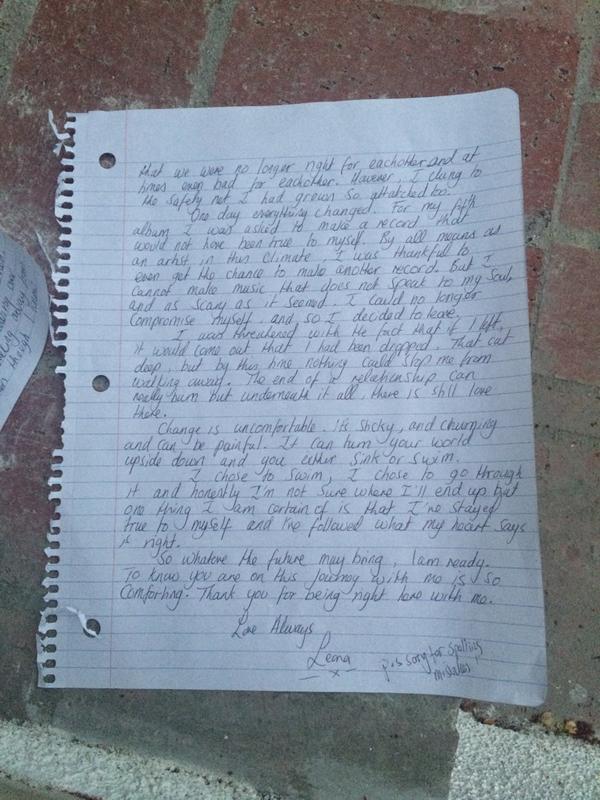 that we were no longer right for eachother and at
times even bad for eachother. However, I clung to
the safety net I had grown so attatched to.
One day everything changed. For my fifth
album I was asked to make a record that
would not have been true to myself. By all means as
an artist in this climate, I was thankful to
even get the chance to make another record. But I
cannot make music that does not speak to my soul,
and as scary as it seemed, I could no longer
compromise myself. and so I decided to leave.
I was threatened with the fact that if I left,
it would come out that I had been dropped. That cut
deep, but by this time nothing could stop me from
walking away. The end of a relationship can
really burn but underneath it all, there is still love
there.
Change is uncomfortable. its sticky, and churning
and can be painful. It can turn your world
upside down and you either sink or swim.
I chose to swim, I chose to go through
it and honestly I'm not sure where I'll end up but
one thing I am certain of is that I've stayed
true to myself and I've followed what my heart says
is right.
So whatever the future may bring, I am ready.
To know you are on this journey with me is so
comforting. Thank you for being right here with me.
Love Always
Leona
x
p.s sorry for spelling
mistakes!